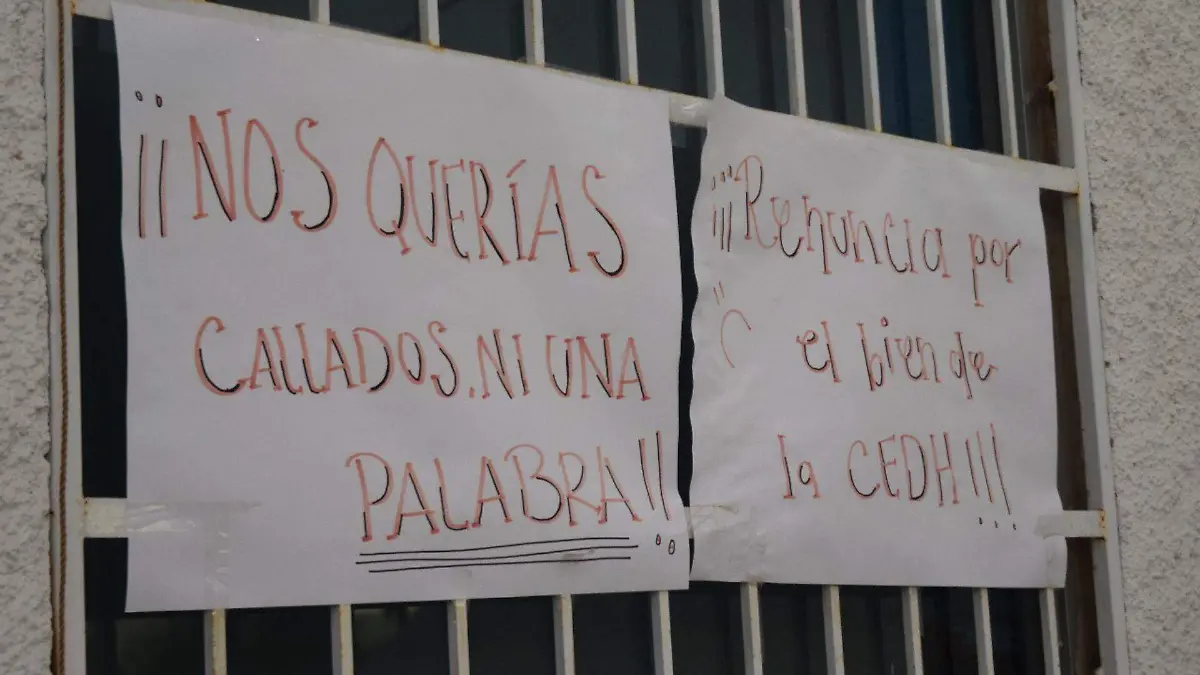 ¡¡NOS QUERÍAS
CALLADOS. NI UNA
PALABRA!!
¡¡¡Renuncia por
el bien de
la CEDH!!!